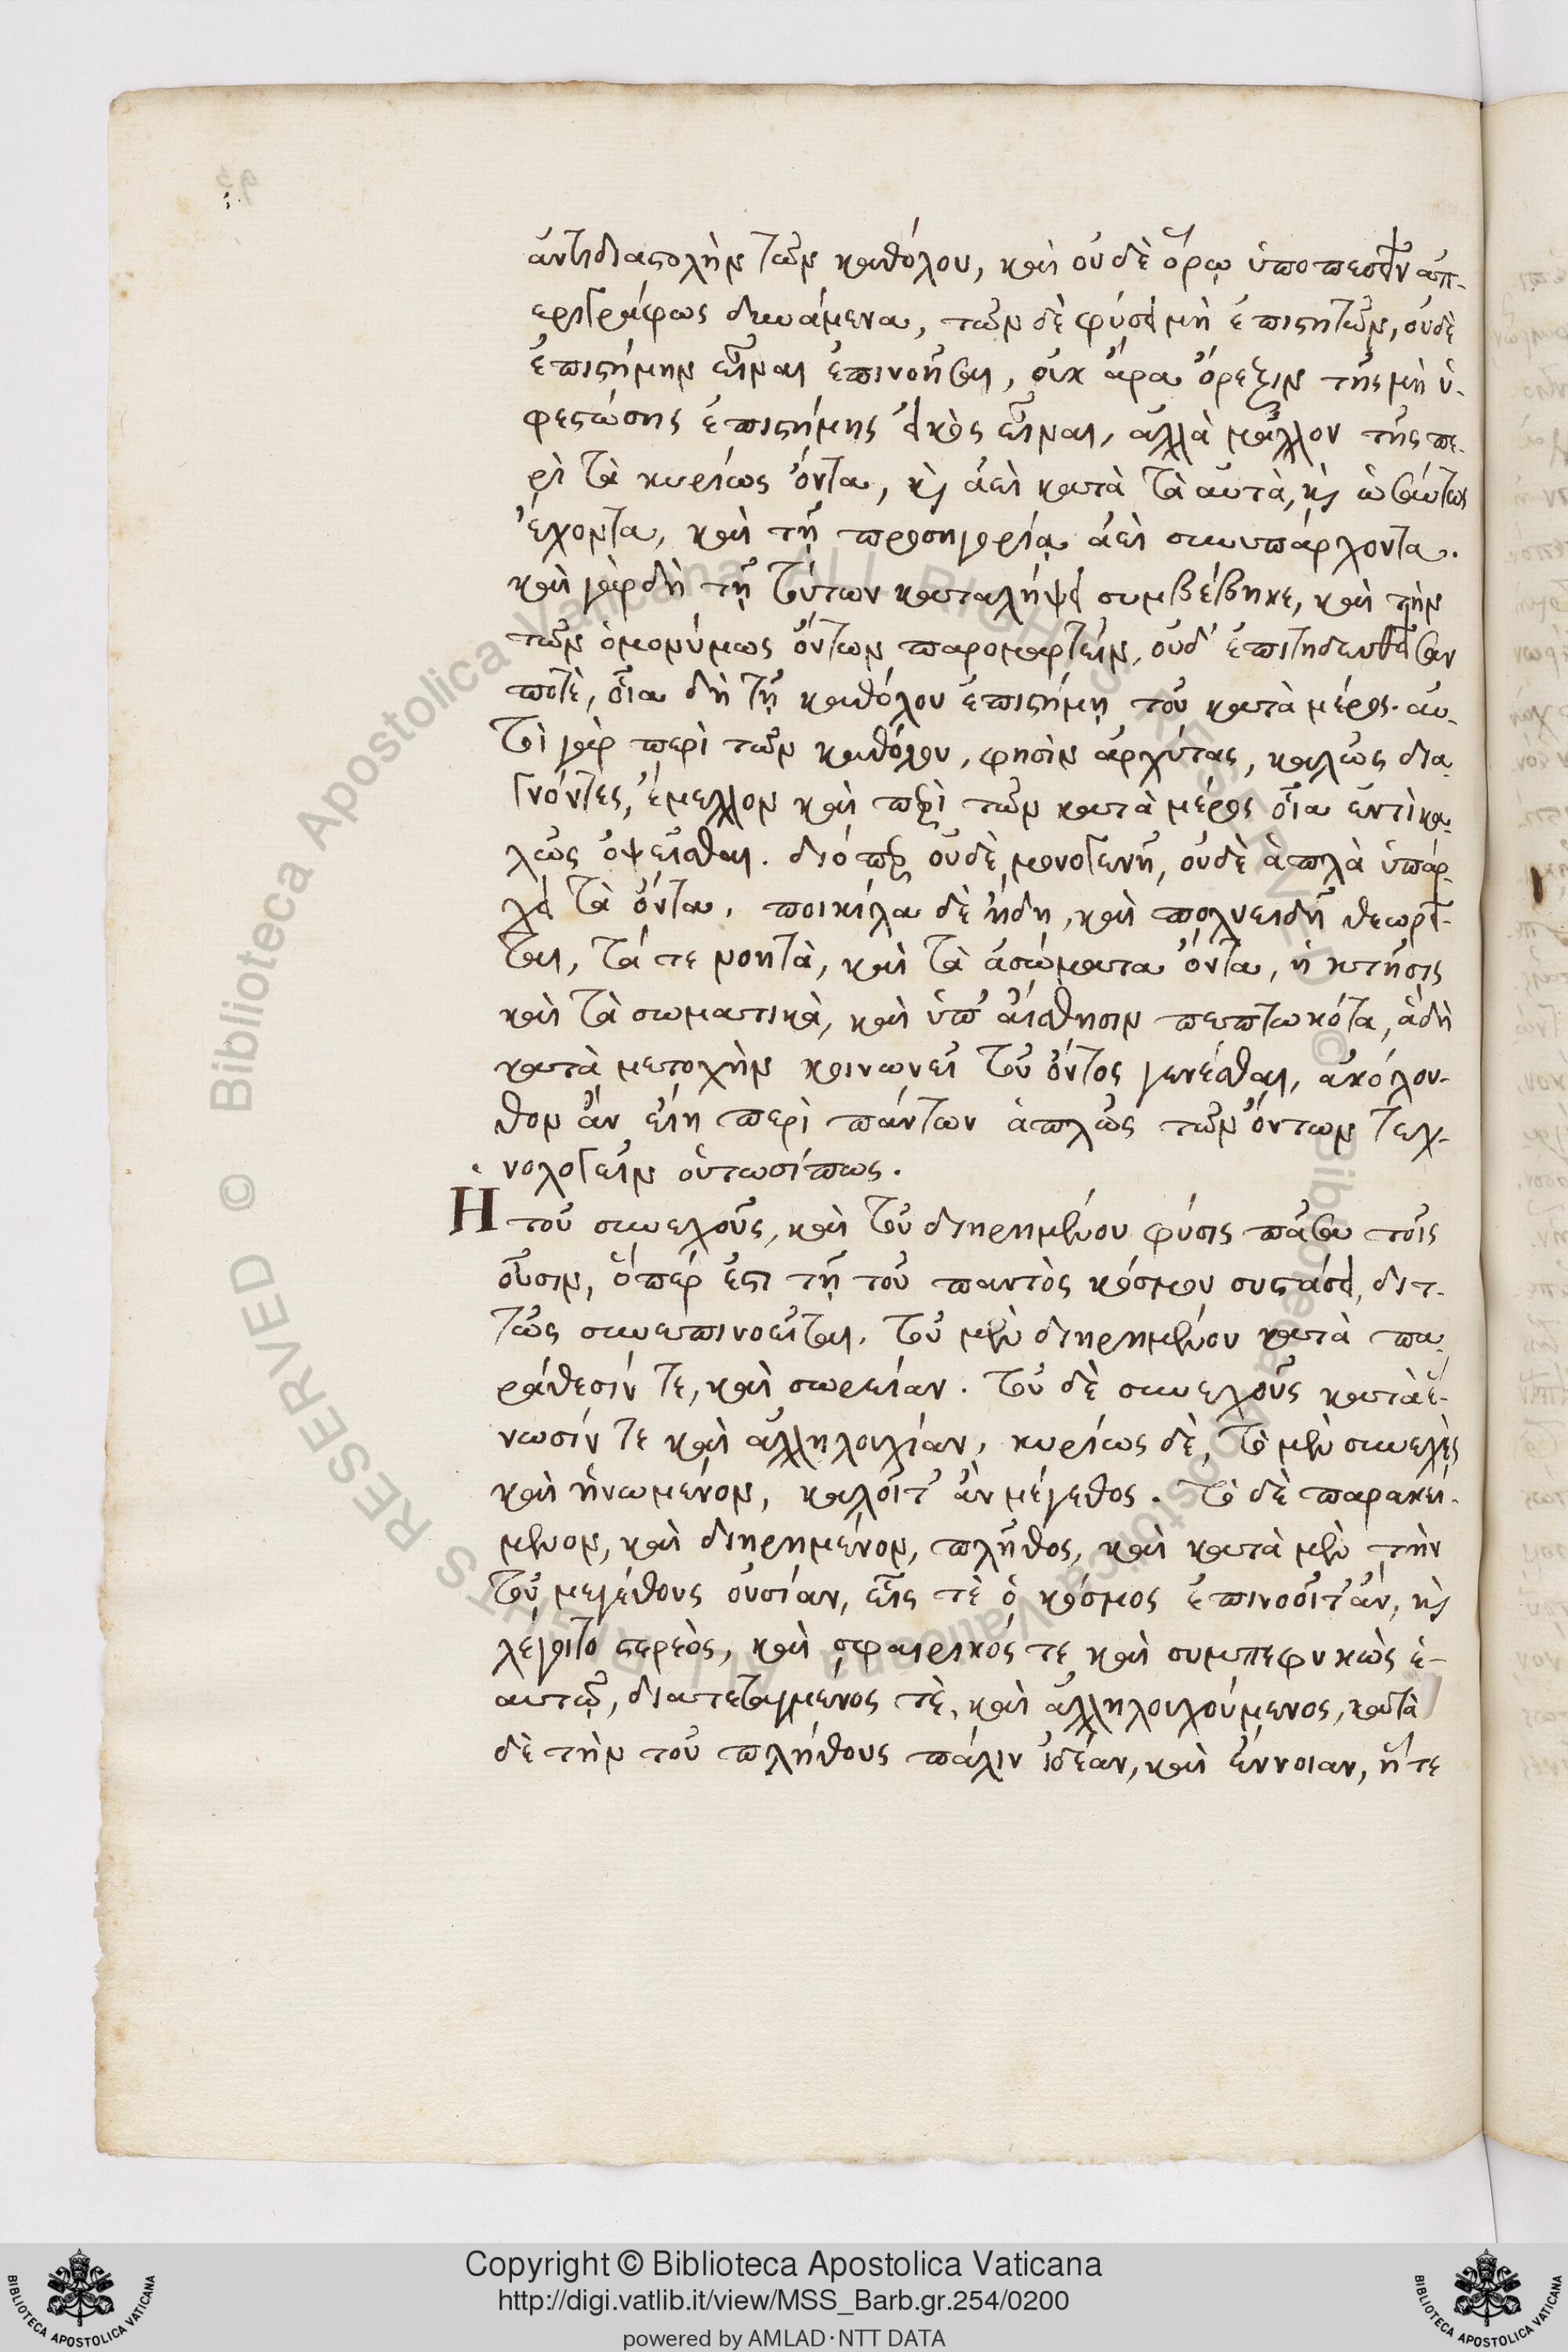 ἀντιδιαστολὴν τῶν καθόλου, καὶ οὐδὲ ὅρῳ ὑποπεσεῖν ἀπ-
εριγράφως δυνάμενα, τῶν δὲ φύσει μὴ ἐπιστητῶν, οὐδὲ
ἐπιστήμην εἶναι ἐπινοῆσαι, οὐκ ἄρα ὄρεξιν τῆς μὴ ὑ-
φεστώσης ἐπιστήμης εἰκὸς εἶναι, ἀλλὰ μᾶλλον τῆς πε-
ρὶ τὰ κυρίως ὄντα, κὶ ἀεὶ κατὰ τὰ αὐτὰ, κὶ ὡσαύτως
ἔχοντα, καὶ τῇ προσηγορίᾳ ἀεὶ συνυπάρχοντα.
καὶ γὰρ δὴ τῇ τούτων καταλήψει συμβέβηκε, καὶ τὴν
τῶν ὁμονύμως ὄντων παρομαρτεῖν, οὐδ' ἐπιτηδευθεῖσαν
ποτὲ, οἷα δὴ τῇ καθόλου ἐπιστήμῃ τοῦ κατὰ μέρος. αυ-
τὶ γὰρ περὶ τῶν καθόλου, φησὶν ἀρχύτας, καλῶς δια-
γνόντες, ἔμελλον καὶ περὶ τῶν κατὰ μέρος οἷα ἐντὶ κα-
λῶς ὀψεῖσθαι. διόπερ οὐδὲ μονογενῆ, οὐδὲ ἁπλὰ ὑπάρ-
χει τὰ ὄντα, ποικίλα δὲ ἤδη, καὶ πολυειδῆ θεωρεῖ-
ται, τά τε νοητὰ, καὶ τὰ ἀσώματα ὄντα, ἡ κτῆσις
καὶ τὰ σωματικὰ, καὶ ὑπ' αἴσθησιν πεπτωκότα, ἃ δὴ
κατὰ μετοχὴν κοινωνεῖ τοῦ ὄντος γενέσθαι, ἀκόλου-
θον ἂν εἴη περὶ πάντων ἁπλῶς τῶν ὄντων τεχ-
νολογεῖν οὑτωσίπως.
Ἡ τοῦ συνεχοῦς, καὶ τοῦ διῃρημένου φύσις πᾶσα τοῖς
οὖσιν, ὅπερ ἐστι τῇ τοῦ παντὸς κόσμου συστάσει, διτ-
τῶς συνεπινοεῖται. τοῦ μὲν διῃρημένου κατὰ πα-
ράθεσίν τε, καὶ σωρείαν. τοῦ δὲ συνεχοῦς κατὰ ἕ-
νωσίν τε καὶ ἀλληλουχίαν, κυρίως δὲ, τὸ μὲν συνεχὲς
καὶ ἡνωμένον, καλοῖτ' ἂν μέγεθος. τὸ δὲ παρακεί-
μενον, καὶ διῃρημένον, πλῆθος, καὶ κατὰ μὲν τὴν
τοῦ μεγέθους οὐσίαν, εἷς τὲ ὁ κόσμος ἐπινοοῖτ' ἂν, κὶ
λέγοιτο στερεὸς, καὶ σφαιρικός τε καὶ συμπεφυκὼς ἑ-
αυτῷ, διατεταγμένος τὲ, καὶ ἀλληλουχούμενος, κατὰ
δὲ τὴν τοῦ πλήθους πάλιν ἰδέαν, καὶ ἔννοιαν, ἥ τε
Copyright © Biblioteca Apostolica Vaticana
http://digi.vatlib.it/view/MSS_Barb.gr.254/0200
powered by AMLAD·NTT DATA
BIBLIOTECA APOSTOLICA VATICANA
BIBLIOTECA APOSTOLICA VATICANA